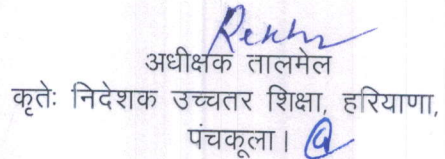 Rekha
अधीक्षक तालमेल
कृतेः निदेशक उच्चतर शिक्षा, हरियाणा,
पंचकूला।